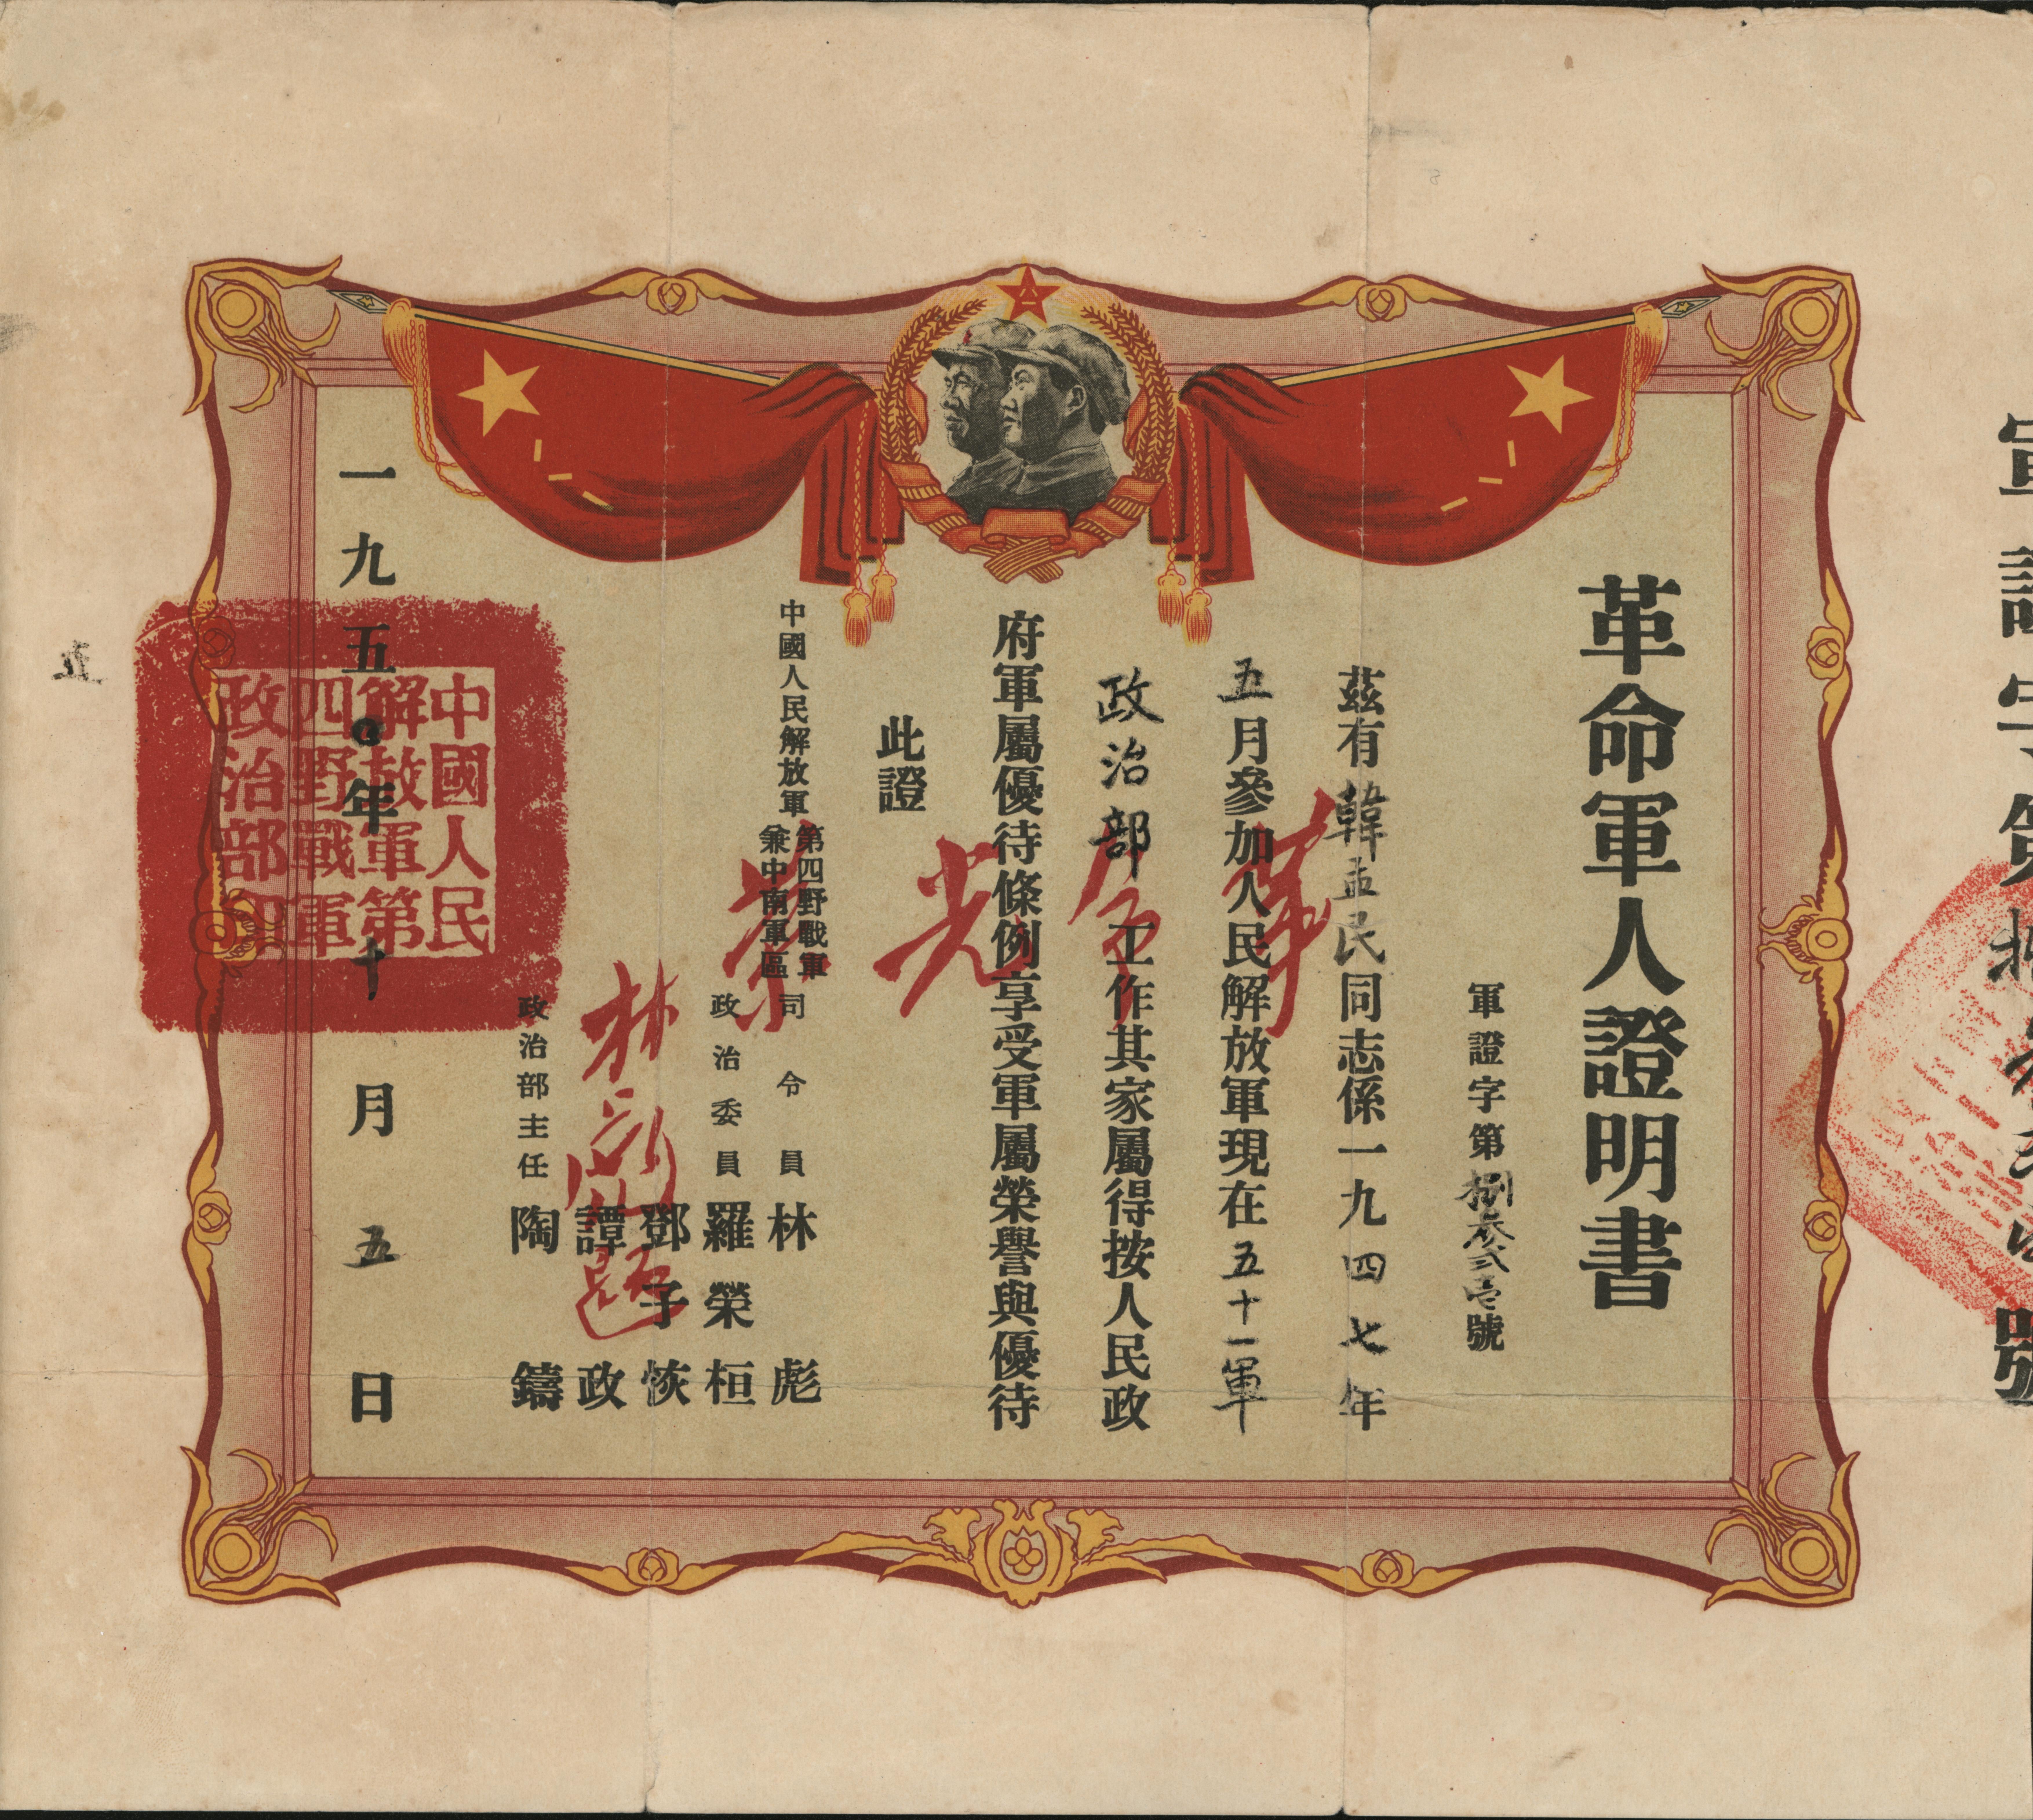 革命軍人證明書
軍證字第捌叁貳壹號
茲有韓孟民同志係一九四七年
五月參加人民解放軍現在五十一軍
政治部工作其家屬得按人民政
府軍屬優待條例享受軍屬榮譽與優待
此證
中國人民解放軍第四野戰軍兼中南軍區
司令員林彪
政治委員羅榮桓
鄧子恢
譚政
政治部主任陶鑄
一九五〇年十月五日
中國人民
解放軍第
四野戰軍
政治部印
軍屬光榮
林彪題